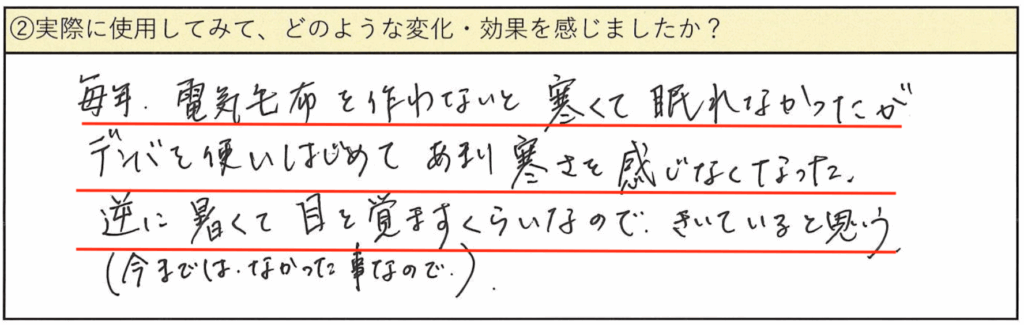 ②実際に使用してみて、どのような変化・効果を感じましたか？
毎年、電気毛布を作わないと寒くて眠れなかったが
デンバを使いはじめてあまり寒さを感じなくなった。
逆に暑くて目を覚ますくらいなので、きいていると思う
(今までは、なかった事なので、)。